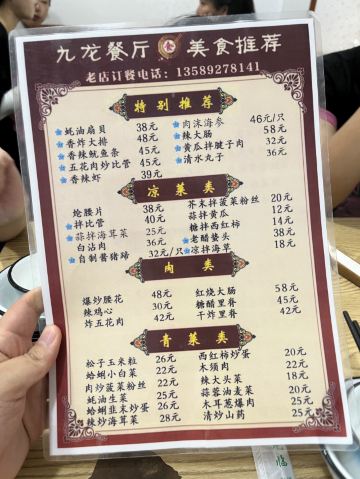 九龙餐厅 美食推荐
老店订餐电话：13589278141
特别推荐
蚝油扇贝 38元
香炸大排 48元
香辣鱿鱼条 45元
五花肉炒比管 45元
香辣虾 39元
肉沫海参 46元/只
辣大肠 58元
黄瓜拌腱子肉 32元
清水丸子 36元
凉菜类
炝腰片 38元
拌比管 40元
蒜拌海茸菜 25元
白沾肉 36元
自制酱猪蹄 32元/只
芥末拌菠菜粉丝 20元
蒜拌黄瓜 12元
糖拌西红柿 14元
老醋蜇头 38元
凉拌海草 18元
肉类
爆炒腰花 48元
辣鸡心 30元
炸五花肉 42元
红烧大肠 58元
糖醋里脊 45元
干炸里脊 42元
青菜类
松子玉米粒 26元
蛤蜊小白菜 22元
肉炒菠菜粉丝 22元
蚝油生菜
蛤蜊韭末炒蛋
辣炒海茸菜
西红柿炒蛋 20元
木须肉 22元
辣大头菜 18元
蒜蓉油麦菜
木耳葱爆肉
清炒山药